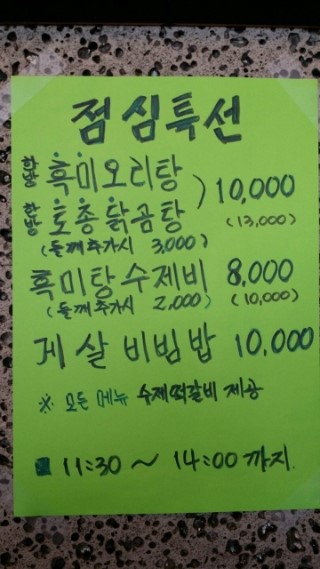 점심특선
한방 흑미오리탕 ) 10,000
한방 토종닭곰탕 (13,000)
(들깨추가시 3,000)
흑미탕수제비 8,000
(들깨추가시 2,000) (10,000)
게살비빔밥 10,000
※ 모든 메뉴 수제떡갈비 제공
■ 11:30 ~ 14:00 까지.